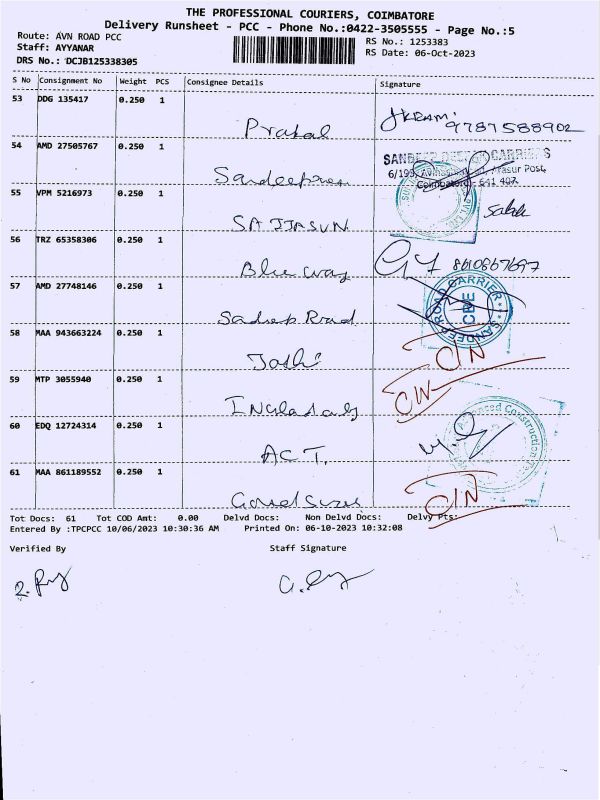 THE PROFESSIONAL COURIERS, COIMBATORE
Delivery Runsheet - PCC - Phone No.:0422-3505555 - Page No.:5
Route: AVN ROAD PCC
RS No.: 1253383
Staff: AYYANAR
RS Date: 06-Oct-2023
DRS No.: DCJB125338305
S No Consignment No Weight PCS Consignee Details Signature
53 DDG 135417 0.250 1
Prabal 9787588902
54 AMD 27505767 0.250 1
SANDEEP ROAD CARRIERS
6/199, Avinashi Arasur Post,
Coimbatore - 641 407.
Sandeep
55 VPM 5216973 0.250 1
56 TRZ 65358306 0.250 1
Blue way 8610867697
57 AMD 27748146 0.250 1
SANDEEP ROAD CARRIER
CBE
Sadeep Road
58 MAA 943663224 0.250 1
C/N
Jothi
59 MTP 3055940 0.250 1
C/N
60 EDQ 12724314 0.250 1
Advanced Construction
ACT.
61 MAA 861189552 0.250 1
C/N
Tot Docs: 61 Tot COD Amt: 0.00 Delvd Docs: Non Delvd Docs: Delvy Pts:
Entered By :TPCPCC 10/06/2023 10:30:36 AM Printed On: 06-10-2023 10:32:08
Verified By Staff Signature